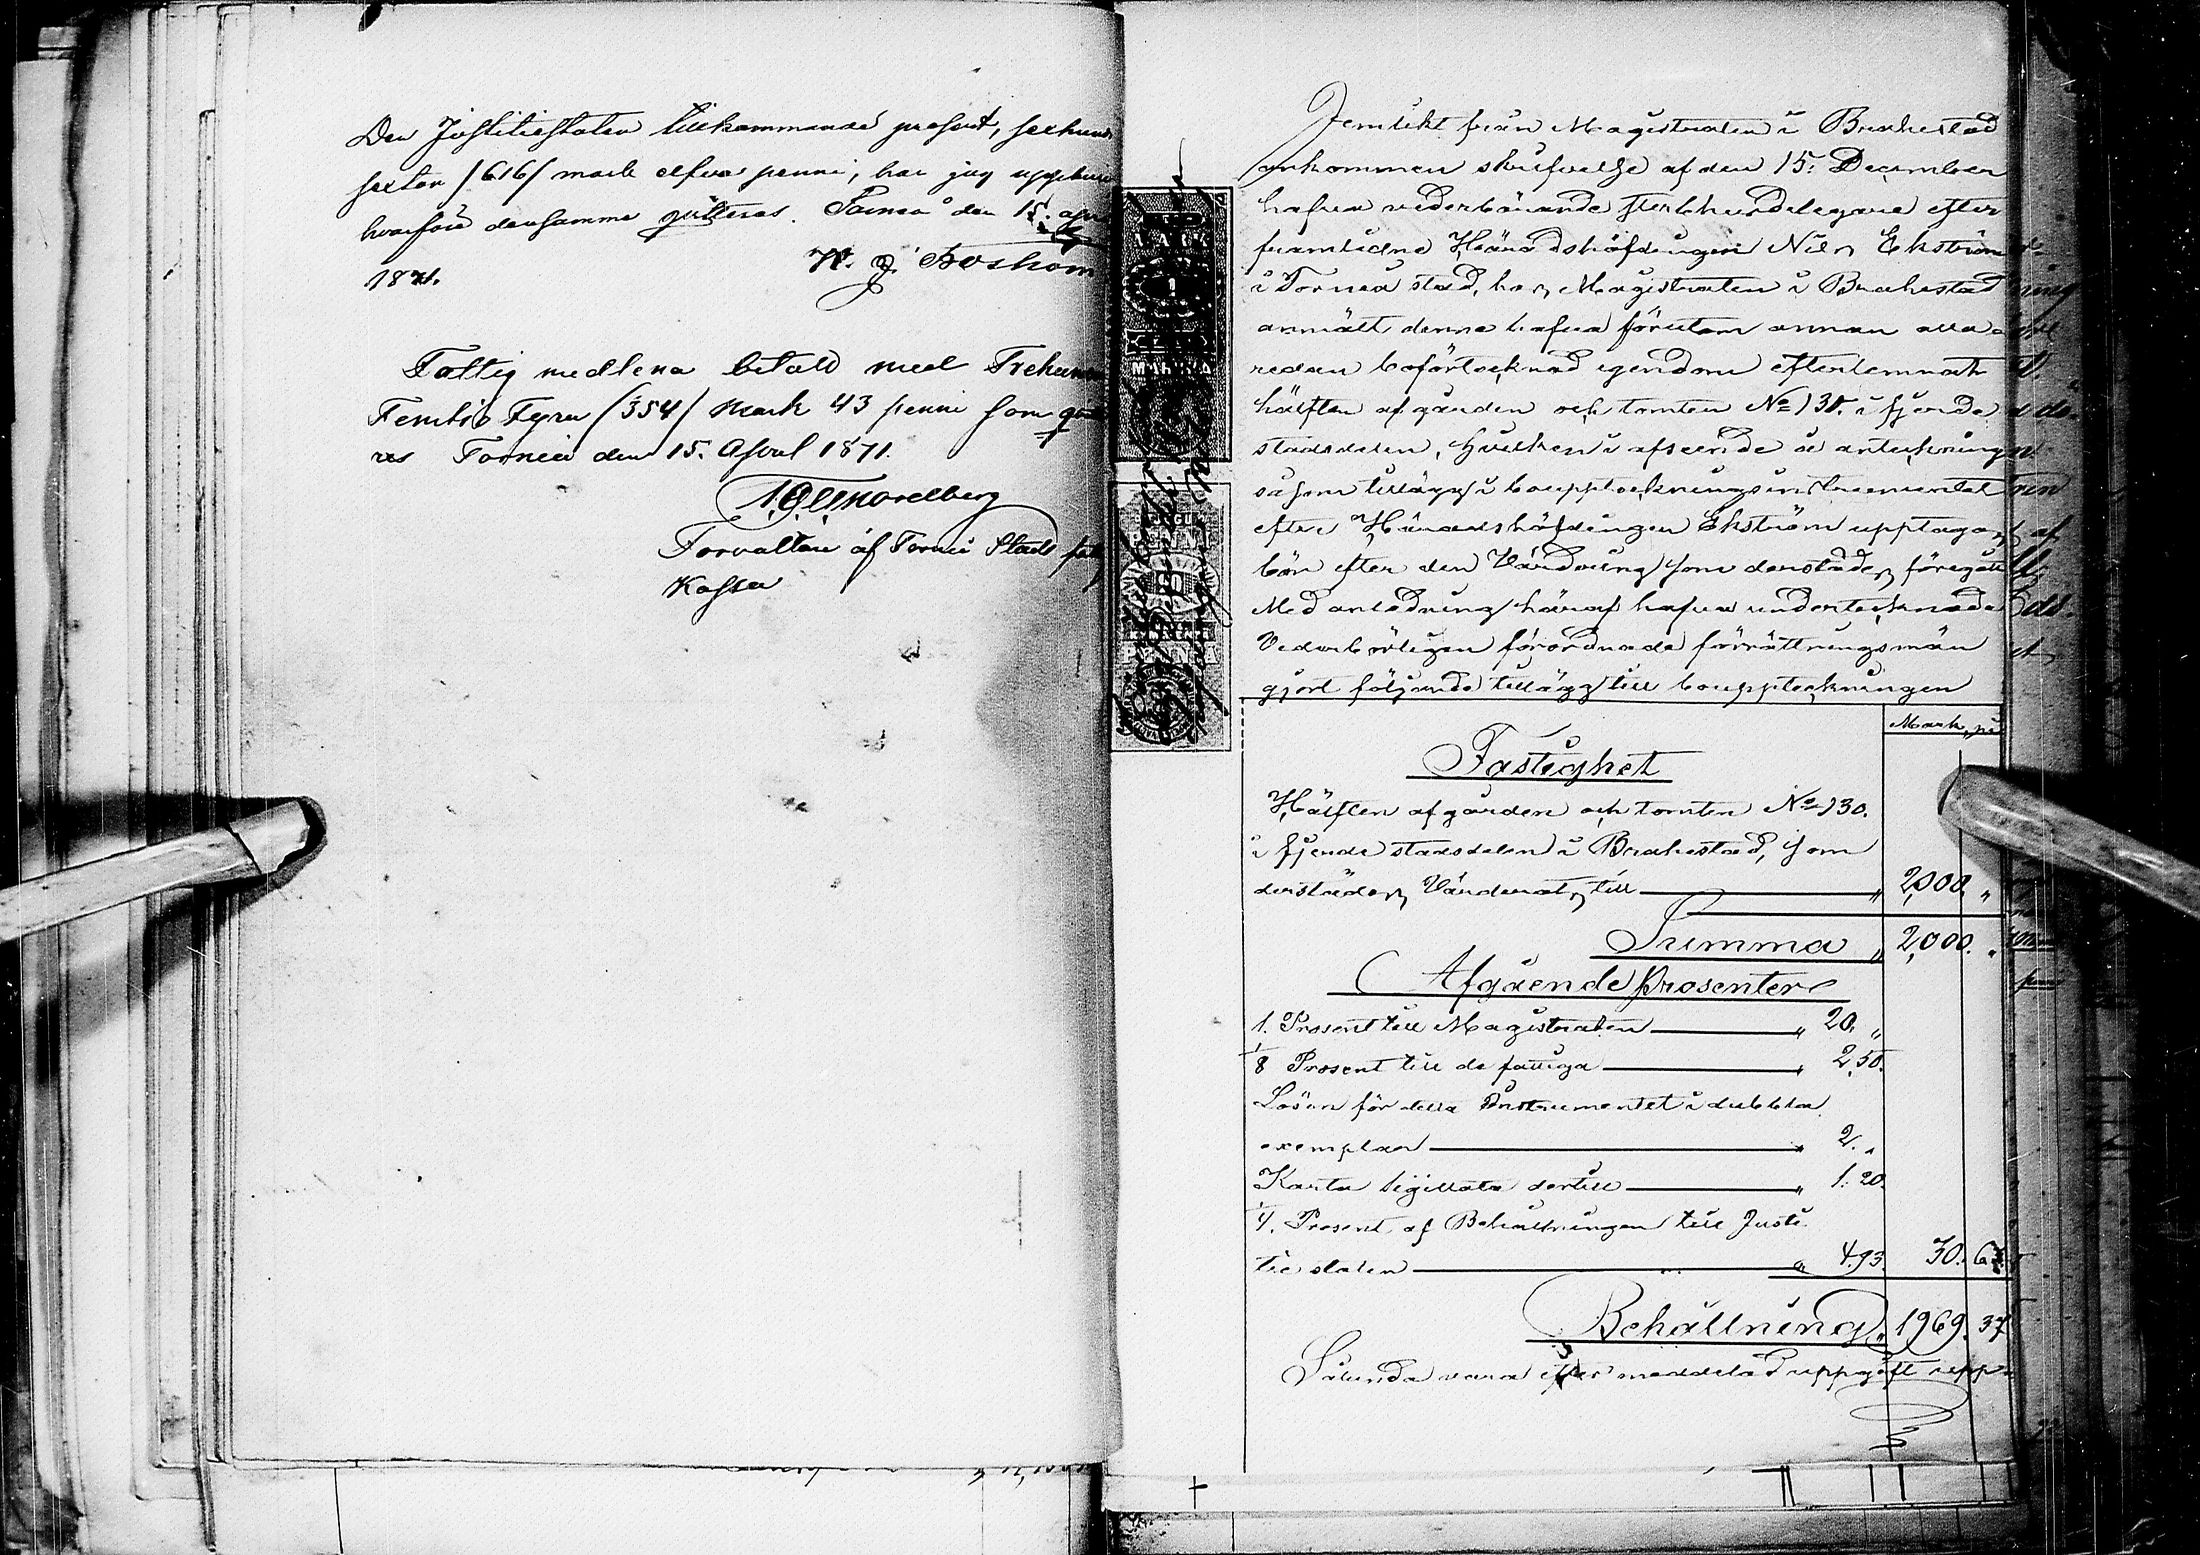 Den Justitiestaten tillkommande prosent, sexhund
sexton /616/ mark elfva penni, har jag uppburit
hvarföre densamma qvitteras. Torneå den 15. april
1871.
W. J. Boshom
Fattig medlena betald med Trehund
Femtio Fyra /354/ Mark 43 penni som qvitte
res Torneå den 15. April 1871.
Nordberg
Förvaltare af Torneå Stads fattig
Kassa
Jemlikt från Magistraten i Brahestad
ankommen skrifvelse af den 15. December
hafva vederbörande sterbhusdelegare efter
framlidne Häradshöfdingen Nils Ekström
i Torneå stad, hos Magistraten i Brahestad
anmält denne hafva förutom annan alla
redan boförtecknad egendom efterlemnat
hälften af gården och tomten No 130. i fjerde
stadsdelen, hvilken i afseende å anteckning
såsom tillägg i bouppteckningsinstrumentet
efter Häradshöfdingen Ekström upptagas
bör efter den Värdering som derstädes föregått
Med anledning häraf hafva undertecknade
Vederbörligen förordnade förrättningsmän
gjort följande tillägg till bouppteckningen
Mark pi
Fastighet
Hälften af gården och tomten No 130.
i fjerde stadsdelen i Brahestad, som
derstädes Värderats till " 2,000. "
Summa " 2,000. "
Afgående Prosenter
1. Prosent till Magistraten " 20. "
1/8 Prosent till de fattiga " 2,50.
Lösen för detta Instrumentet i dubbla
exemplar " 2. "
Karta sigillata dertill " 1. 20.
1/4. Prosent af Behållningen till Justi
tie staten " 4.93. 30. 63
Behållning " 1969. 37
Sålunda vara efter meddelad uppgift upp-